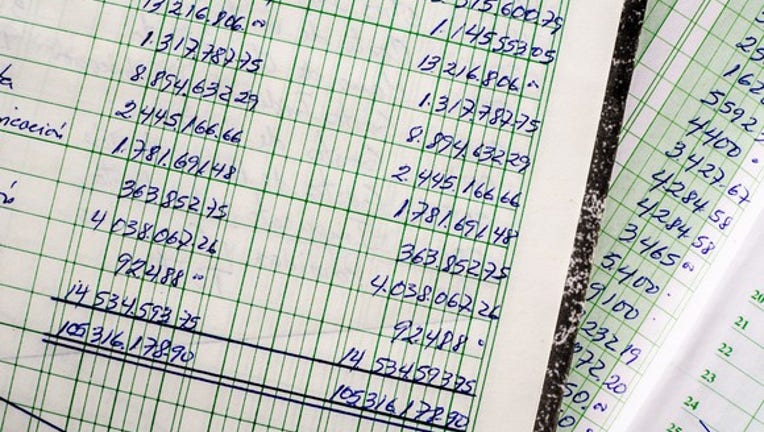 13 216.806.00
1.317.787.75
8.894.632.29
2.445.166.66
nicación
1.781.691.48
363.852.75
4 038.067.26
92.488 00
14 534.593.75
105 316.178.90
1.145.553.05
13 216.806 00
1.317.787.75
8.894.632.29
2.445.166.66
1 781.691.48
363.852.75
4.038.067.26
92488
14 534 593 75
105316.178.90
4400
3427.67
4284.58
4284.58
3465 00
5.400
9100
232 19
72.20
50.00
20
21
22
23
24
25